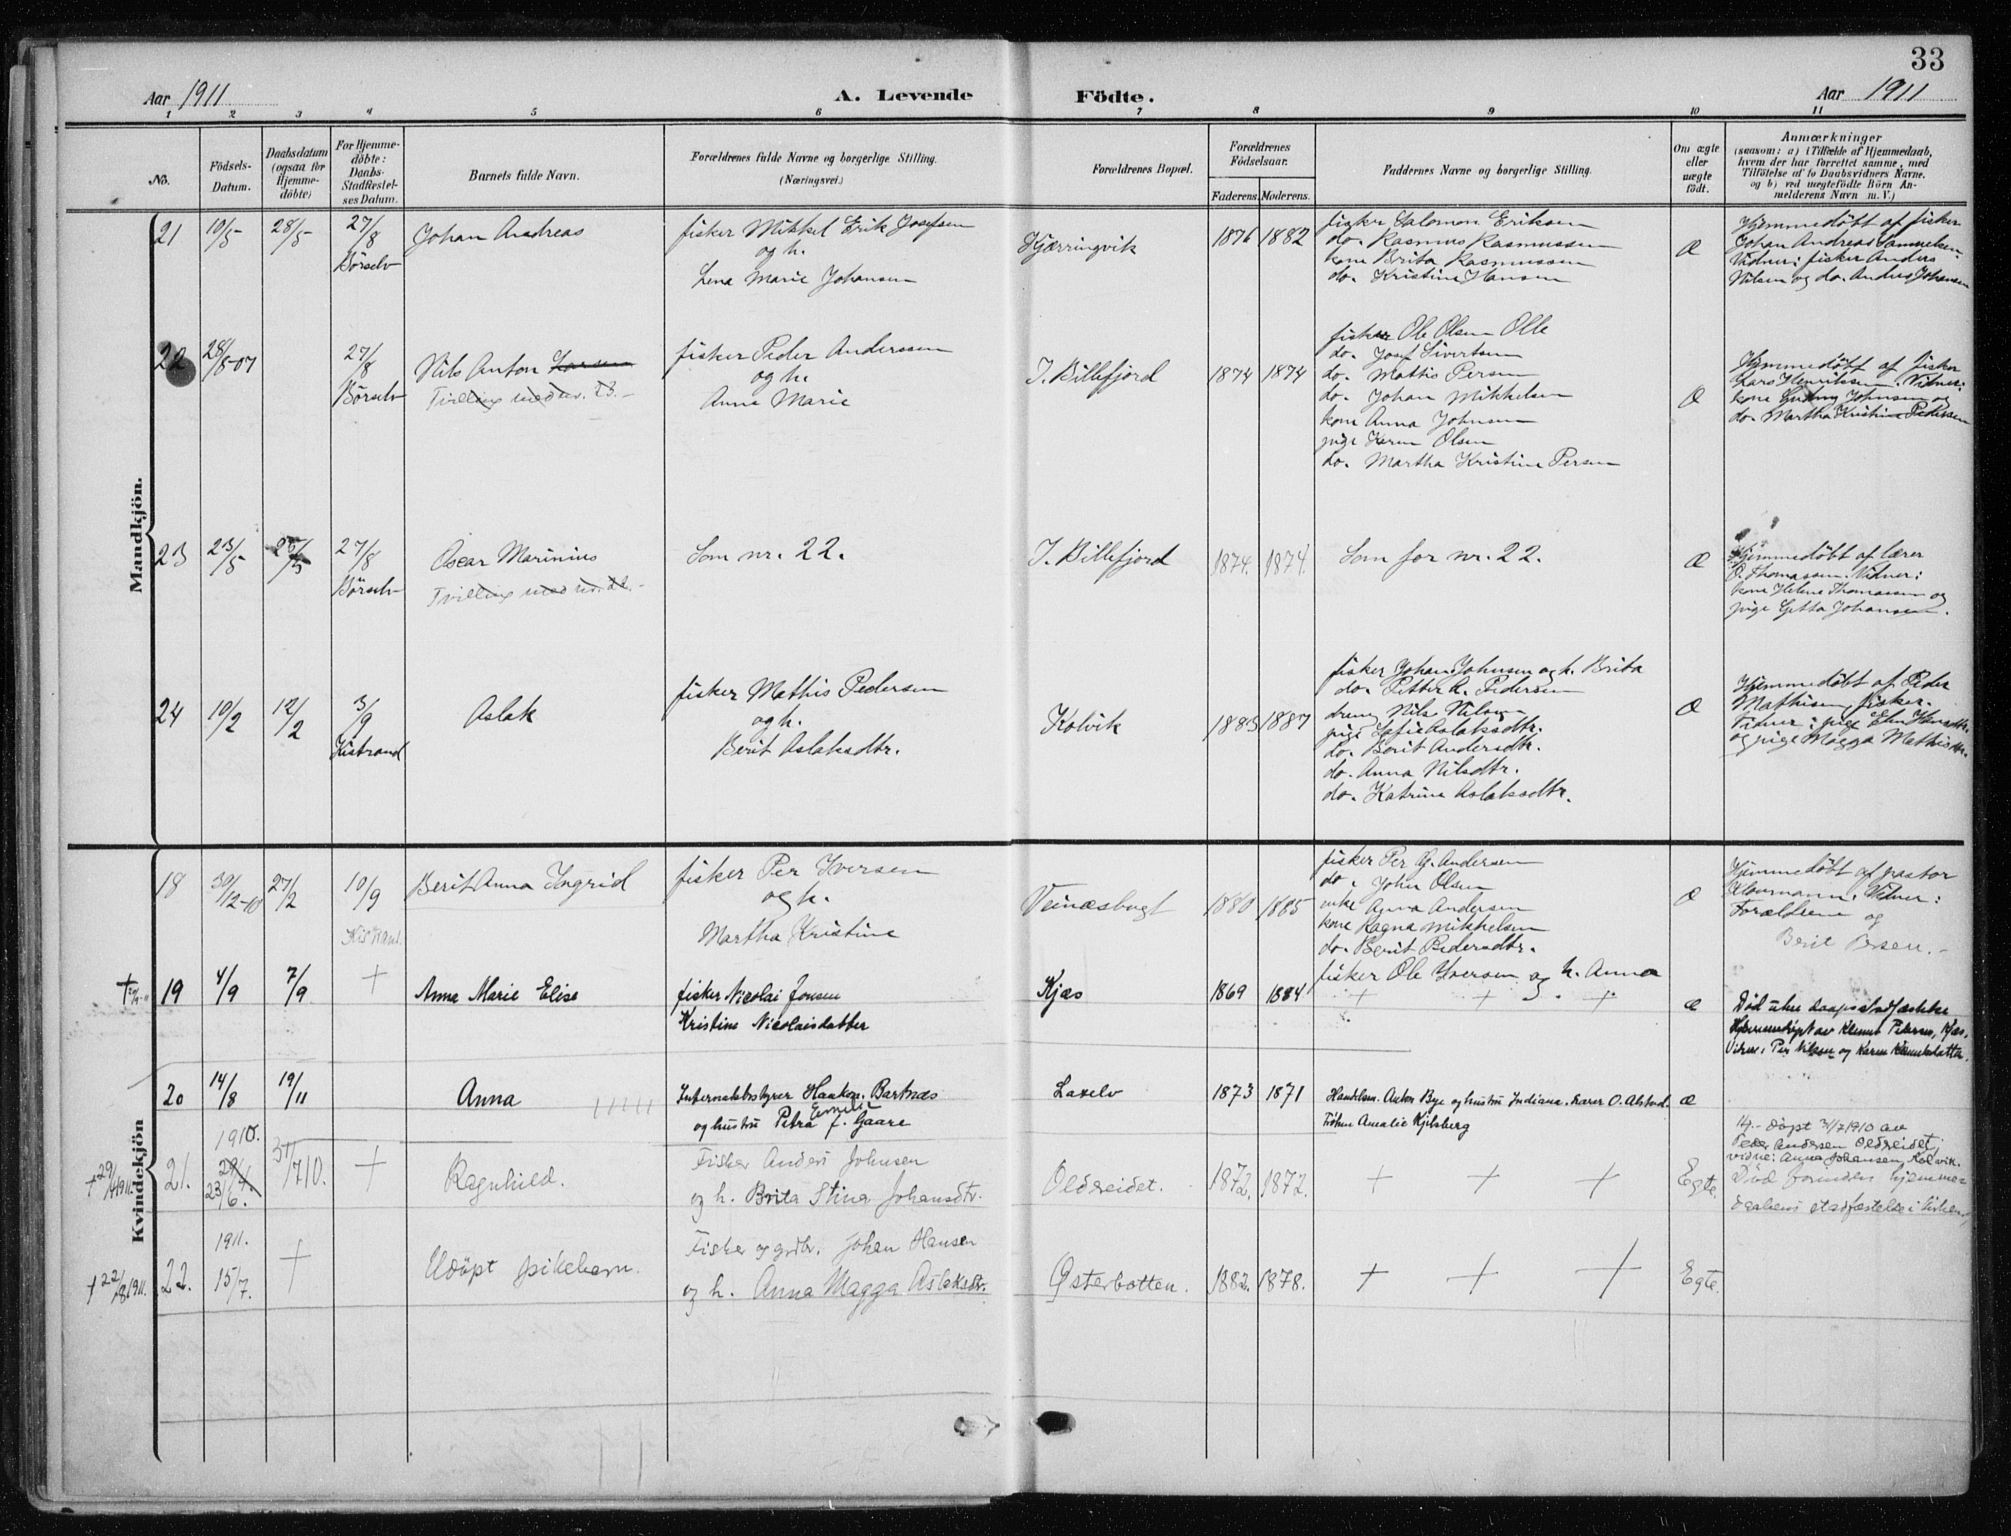 33
Aar 1911
A. Levende Födte.
Aar 1911
1 2 3 4 5 6 7 8 9 10 11
No.
Födsels-
Datum.
Daabsdatum
(ogsaa for
Hjemme-
döbte)
For Hjemme-
döbte:
Daabs-
Stadfæstel-
ses Datum.
Barnets fulde Navn.
Forældrenes fulde Navne og borgerlige Stilling.
(Næringsvei.)
Forældrenes Bopæl.
Forældrenes
Födselsaar.
Faderens. Moderens.
Faddernes Navne og borgerlige Stilling.
Om ægte
eller
uægte
födt.
Anmærkninger
(saasom: a) i Tilfælde af Hjemmedaab,
hvem der har forrettet samme, med
Tilföielse af to Daabsvidners Navne,
og b) ved uægtefödte Börn An-
melderens Navn m. V.)
Mandkjön.
21
10/5
28/5
27/8
Börselv
Johan Andreas
fisker Mikkel Erik Josefsen
og h.
Lena Marie Johansen
Kjærringvik
1876 1882
fisker Salomon Eriksen
do. Rasmus Rasmussen
kone Brita Rasmussen
do. Kristine Hansen
Æ
Hjemmedöbt af fisker
Johan Andreas Samuelsen.
Vidner: fisker Anders
Nilsen og do. Anders Johansen
22
28/5-07
27/8
Börselv
Nils Anton Larsen
Tvilling med nr. 23.
fisker Peder Anderssen
og h.
Anne Marie
I. Billefjord
1874 1874
fisker Ole Olsen Olle
do. Josef Sivertsen
do. Mattis Persen
do. Johan Mikkelsen
kone Anna Johnsen
pige Karen Olsen
do. Martha Kristine Persen
Æ
Hjemmedöbt af fisker
Lars Henriksen. Vidner:
kone Johnsen og
do. Martha Kristine Pedersen
23
23/5
27/8
Börselv
Oscar Marinius
Tvilling med nr. 22.
Som nr. 22.
I. Billefjord
1874. 1874.
Som for nr. 22.
Æ
Hjemmedöbt af lærer
O. Thomassen. Vidner:
kone Helene Thomassen og
pige Getta Johansen.
24
10/2
12/2
3/9
Kistrand
Aslak
fisker Mathis Pedersen
og h.
Berit Aslaksdtr.
Kolvik
1883 1887
fisker Johan Johnsen og h. Brita
do. Petter A. Pedersen
dreng Nils Nilsen
pige Sofie Aslaksdtr.
do. Berit Andersdtr.
do. Anna Nilsdtr.
do. Katrine Aslaksdtr.
Æ
Hjemmedöbt af Peder
Mathisen, fisker.
Vidner: pige
og pige Magga Mathisdtr.
Kvindekjön
18
30/12-10
27/2
10/9
Kistrand.
Berit Anna Ingrid
fisker Per Iversen
og h.
Martha Kristine
Veinæsbugt
1880 1885
fisker Per G. Andersen
do. John Olsen
enke Anna Andersen
kone Ragna Mikkelsen
do. Berit Pedersdtr.
fisker Ole Iversen og h. Anna
Æ
Hjemmedöbt af pastor
Klaumann. Vidner:
Forældrene og
Berit Persen.
+20/9-11
19
4/9
7/9
+
Anne Marie Elise
fisker Nicolai Jonsen
Kristine Nicolaisdatter
Kjæs
1869 1884
+ + +
æ
Död uten daapsstadfæstelse
Hjemmedöpt av Klemet Petersen, Kjæs.
Vidner: Per Nilsen og Karen Klemetsdatter.
20
14/8
19/11
Anna
Internatbestyrer Haakon Bartnæs
og hustru Petra Emelie f. Gaare
Laxelv
1873 1871
Handelsm. Anton Bye og hustru Indiana. Lærer O. Alstad.
Fröken Amalie Kjilsberg
æ
+29/4 1911.
21.
1910.
23/6.
31/7 10.
+
Ragnhild.
Fisker Anders Johnsen
og h. Brita Stina Johansdtr.
Oldereidet.
1872. 1872.
+ + +
Egte.
Hj.-döpt 31/7 1910 av
Peder Andersen Oldreidet;
vidne: Anna Johansen, Kolvik.
Död forinden hjemme-
daabens stadfæstelse i kirken.
+22/8 1911.
22.
1911.
15/7.
+
Udöpt pikebarn.
Fisker og grdbr. Johan Hansen
og h. Anna Magga Aslaksdtr.
Østerbotten.
1882. 1878.
+ + +
Egte.